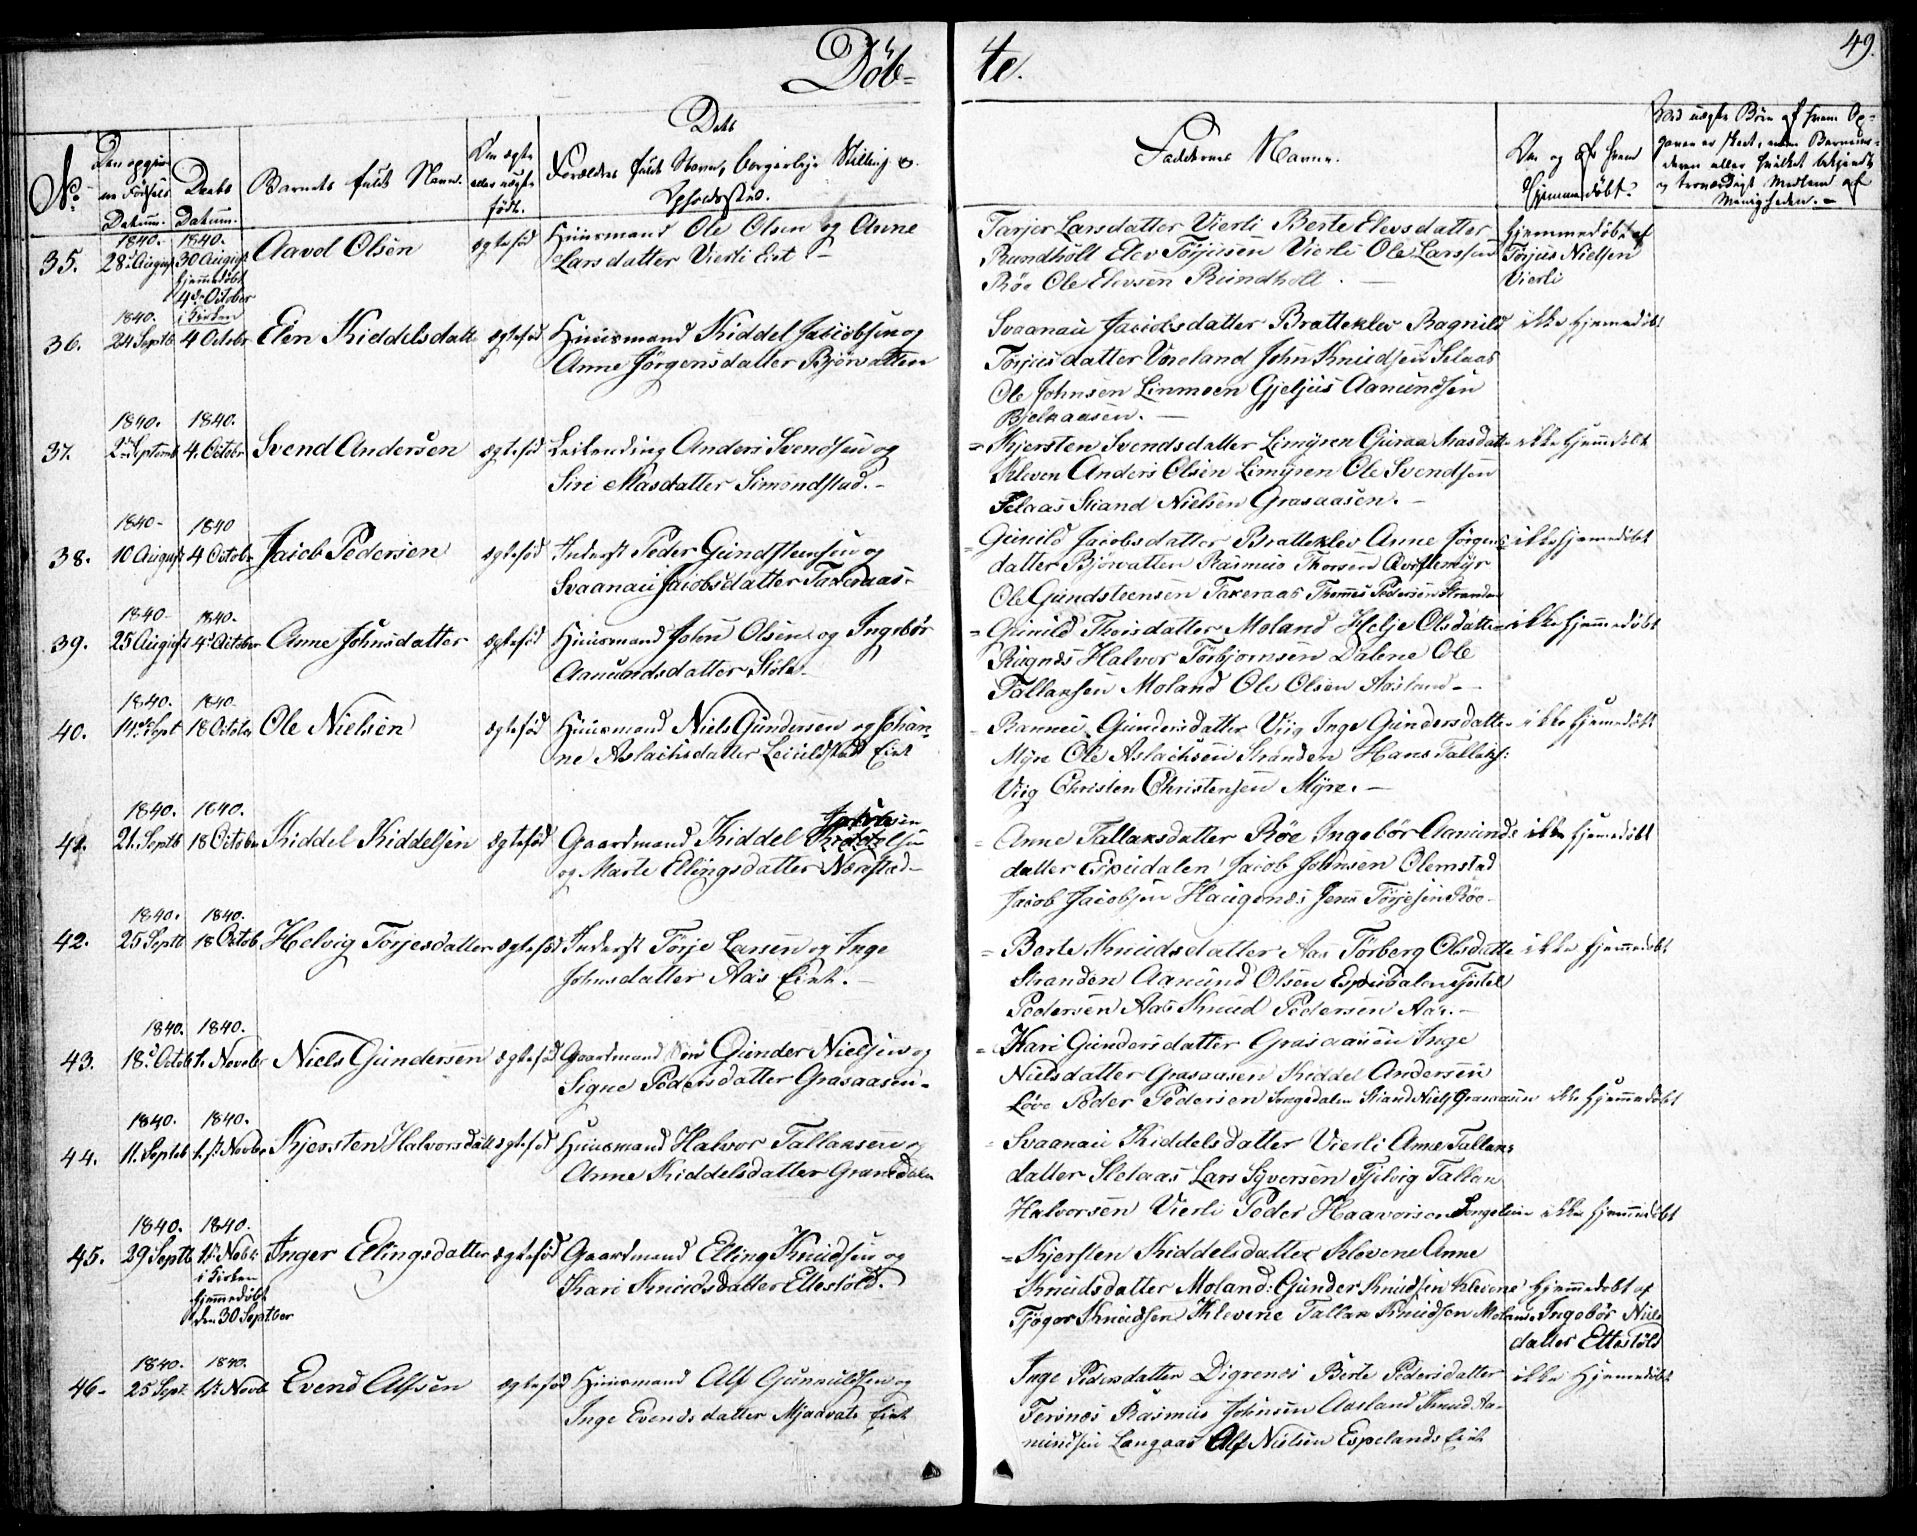 Döb-
te.
49.
No
Den opgivne Födsels Datum.
Daabs Datum.
Barnets fulde Navn.
Om ægte eller uægte födt.
Dets Forældres fulde Navn, borgerlige Stilling og Opholdssted.
Faddernes Navne.
Om og af hvem Hjemmedöbt?
35.
1840. 28 August
1840. 30 August hjemmedöbt 4de October i Kirken
Aavol Olsen
ægteföd
Huusmand Ole Olsen og Anne
Larsdatter Vierli Eiet
Tarjer Larsdatter Vierli Berte Elevsdatter
Rundholt Elev Törjusen Vierli Ole Larssen
Röe Ole Elevsen Rundholt.
Hjemmedöbt af
Törjus Nielsen
Vierli
36.
1840. 24 Septb
1840. 4 Octobr
Elen Kiddelsdatt
ægtefød
Huusmand Kiddel Jacobsen og
Anne Jörgensdatter Bjorvatten
Svaanau Jacobsdatter Bratteklev Ragnild
Törjusdatter Voreland John Knudsen Selaas
Ole Johnsen Linmoen Gjeljus Aanundsen
Bjelkaasen.
ikke Hjemedöbt
37.
1840. 2 Septemb
1840. 4. Octobr
Svend Andersen
ægtefød
Leilending Anders Svendsen og
Siri Aasdatter Simondstad.
Kjersten Svendsdatter Limyren Guroa Aasdatt
Kleven Anders Olsen Limyren Ole Svendsen
Selaas Strand Nielsen Grasaasen.
ikke Hjemedöbt
38.
1840. 10 August
1840 4 Octobr
Jacob Pedersen
ægtefød
Inderst Peder Gundstensen og
Svaanau Jacobsdatter Taxeraas
Gunild Jacobsdatter Bratteklev Anne Jörgens
datter Bjorvatten Rasmus Thorsen Qvistemyr
Ole Gundsteensen Taxeraas Thomes Pedersen Stranden
ikke hjemedöbt
39.
1840 25 August
1840. 4d October
Anne Johnsdatter
ægtefød
Huusmand John Olsen og Ingebör
Aanundsdatter Stöle
Gunild Thorsdatter Moland Helje Olsdatter
Rugnes Halvor Törbjornsen Dalene Ole
Tallaksen Moland Ole Olsen Aasland
ikke hjemmedöbt
40.
1840. 14de Sept
1840. 18 October
Ole Nielsen
ægtefød
Huusmand Niels Gundersen og Johan-
ne Aslachsdatter Leiulstad Eiet
Rannei Gundersdatter Viig Inge Gundersdatter
Myre Ole Aslachsen Stranden Hans Tallaks:
Viig Christen Christensen Myre.
ikke hjemedöbt
41.
1840. 21. Septb
1840. 18 Octobr
Kiddel Kiddelsen
ægtefød
Gaardmand Kiddel
og Marte Ellingsdatter Nærstad
Anne Tallaksdatter Röe Ingebör Aanunds
datter Espeidalen Jacob Johnsen Olemstad
Jacob Jacobsen Haugenes Jens Törjesen Röe
ikke hjemedöbt
42.
1840. 25 Septb
1840. 18 Octob
Helvig Torjesdatter
ægtefød
Inderst Törje Larsen og Inge
Johnsdatter Aas Eiet.
Berte Knudsdatter Aas Törberg Olsdatte
Stranden Aanund Olsen Espeidalen Kjetel
Pedersen Aas Knud Pedersen Aas.
ikke hjemedöbt
43.
1840. 18d Octob
1840. 1. Novebr
Niels Gundersen
ægtefød
Gaardmand Gunder Nielsen og
Signe Pedersdatter Grasaasen
Kari Gundersdatter Grasaasen Inge
Nielsdatter Grasaasen Kiddel Andersen
Löve Peder Pedersen Songedalen Strand Niels Grasaasen
ikke Hjemmedöbt
44.
1840. 11. Septeb
1840. 1.st Novbr
Kjersten Halvorsdatt
ægtefød
Huusmand Halvor Tallaksen og
Anne Kiddelsdatter Granedalen
Svaanau Kiddelsdatter Vierli Anne Tallaks
datter Selaas Lars Syversen Fjelvig Tallak
Halvorsen Vierli Peder Haavorsen Songelien
ikke hjemmedöbt
45.
1840. 29 Septb
1840. 1st Nobr: i Kirken hjemmedöbt den 30 Septber
Inger Ellingsdatter
ægtefød
Gaardmand Elling Knudsen og
Kari Knudsdatter Ettestöld.
Kjersten Kiddelsdatter Klevene Anne
Knudsdatter Moland: Gunder Knudsen Klevene
Tjöger Knudsen Klevene Tallak Knudsen Moland
Hjemmedöbt af
Ingebör Niels
datter Ettestöld
46
1840. 25 Sept.
1840. 1st. Novb
Evend Alfsen
ægtefød
Huusmand Alf Gunnuldsen og
Inge Evendsdatter Mjaavats Eiet
Inge Pedersdatter Digrenes Berte Pedersdatter
Terisnes Rasmus Johnsen Aasland Knud Aa-
nundsen Langaas Alf Nielsen Espelands Eiet
ikke Hjemedöbt